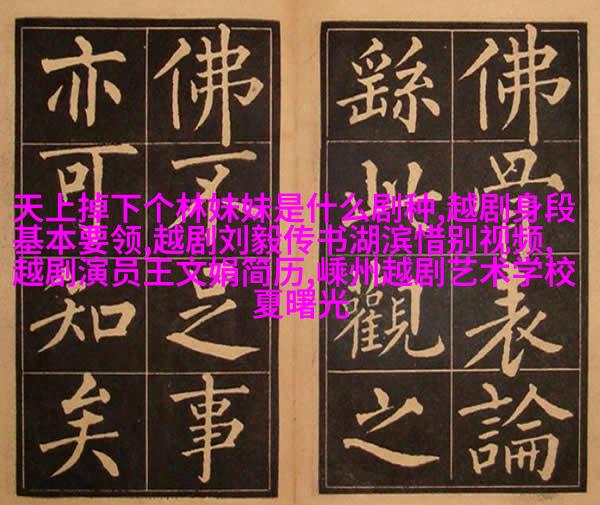 天上掉下个林妹妹是什么剧种,越剧身段
基本要领,越剧刘毅传书湖滨惜别视频,
越剧演员王文娟简历,嵊州越剧艺术学校
夏曙光
佛骨表論
繇此觀之
佛不足事
亦可知矣